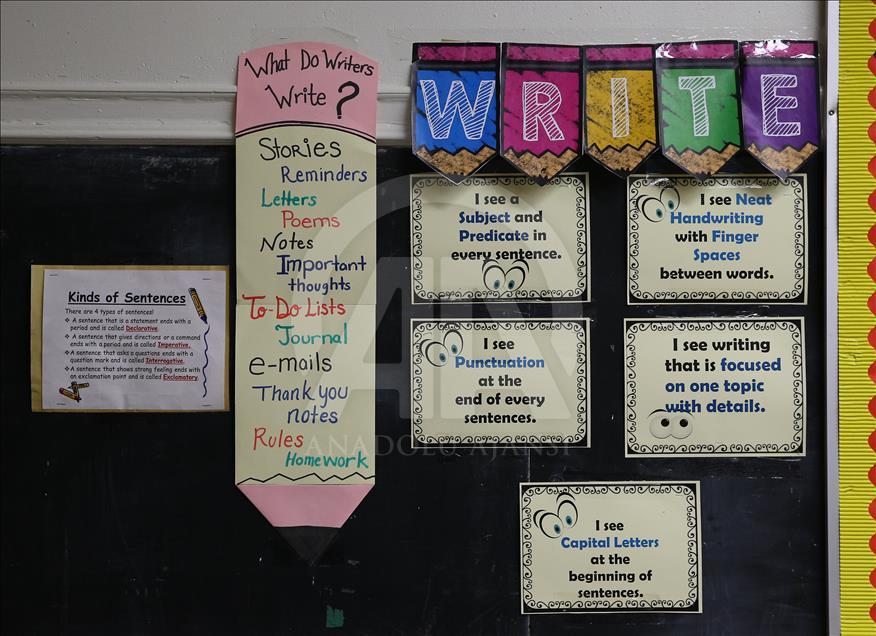 What Do Writers
Write ?
Stories
Reminders
Letters
Poems
Notes
Important
thoughts
To-Do Lists
Journal
e-mails
Thank you
notes
Rules
Homework
WRITE
I see a
Subject and
Predicate in
every sentence.
I see Neat
Handwriting
with Finger
Spaces
between words.
I see
Punctuation
at the
end of every
sentences.
I see writing
that is focused
on one topic
with details.
I see
Capital Letters
at the
beginning of
sentences.
Kinds of Sentences
There are 4 types of sentences!
❖ A sentence that is a statement ends with a
period and is called Declarative.
❖ A sentence that gives directions or a command
ends with a period and is called Imperative.
❖ A sentence that asks a questions ends with a
question mark and is called Interrogative.
❖ A sentence that shows strong feeling ends with
an exclamation point and is called Exclamatory.
AA
ANADOLU AJANSI